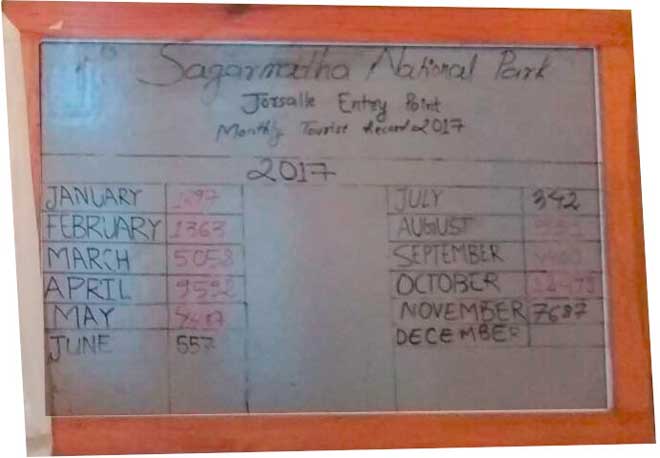 Sagarmatha National Park
Jorsalle Entry Point
Monthly Tourist Record 2017
2017
JANUARY
FEBRUARY 1363
MARCH 5058
APRIL 9592
MAY
JUNE 557
JULY 342
AUGUST
SEPTEMBER
OCTOBER
NOVEMBER 7687
DECEMBER